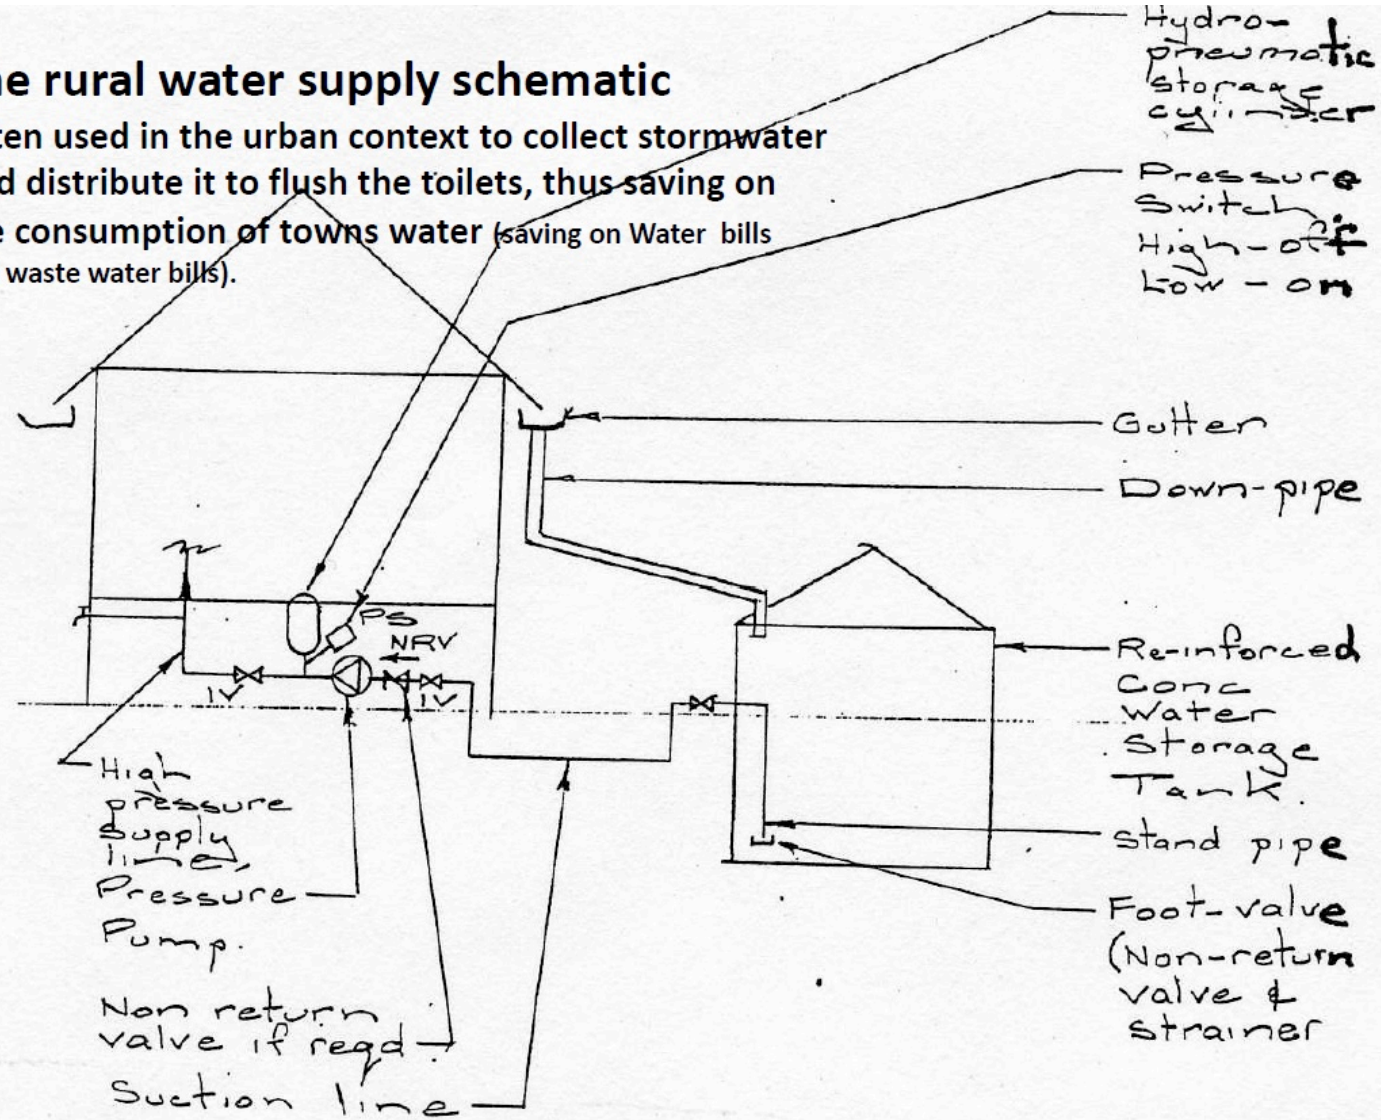 ne rural water supply schematic
ten used in the urban context to collect stormwater
d distribute it to flush the toilets, thus saving on
e consumption of towns water (saving on Water bills
waste water bills).
Hydro-
pneumatic
storage
cylinder
Pressure
Switch
High-off
Low - on
Gutter
Down-pipe
PS
NRV
IV
IV
Re-inforced
Conc
Water
Storage
Tank.
Stand pipe
Foot-valve
(Non-return
valve &
strainer
High
pressure
supply
line,
Pressure
Pump.
Non return
valve if reqd
Suction line